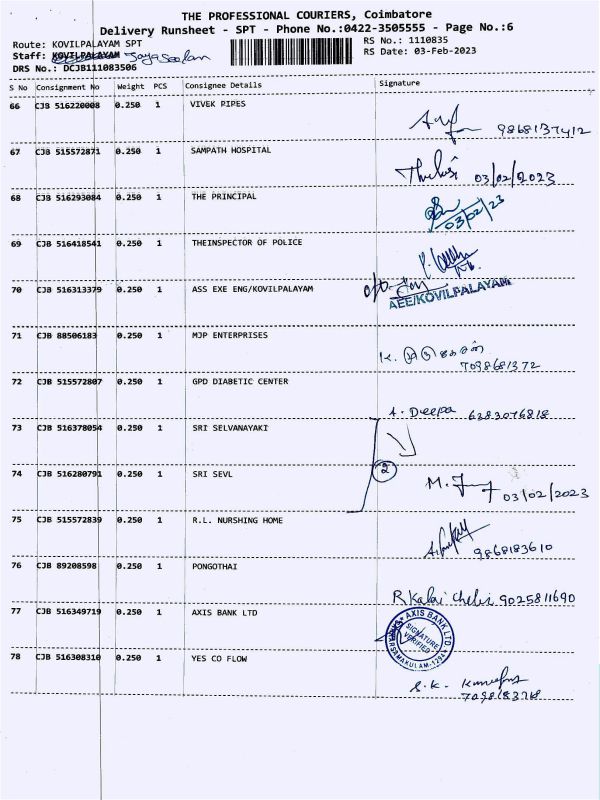 THE PROFESSIONAL COURIERS, Coimbatore
Delivery Runsheet - SPT - Phone No.:0422-3505555 - Page No.:6
Route: KOVILPALAYAM SPT
RS No.: 1110835
Staff: KOVILPALAYAM
RS Date: 03-Feb-2023
DRS No.: DCJB111083506
S No Consignment No Weight PCS Consignee Details Signature
66 CJB 516220008 0.250 1 VIVEK PIPES
9868137412
67 CJB 515572871 0.250 1 SAMPATH HOSPITAL
03/02/2023
68 CJB 516293084 0.250 1 THE PRINCIPAL
03/02/23
69 CJB 516418541 0.250 1 THEINSPECTOR OF POLICE
70 CJB 516313379 0.250 1 ASS EXE ENG/KOVILPALAYAM
AEE/KOVILPALAYAM
71 CJB 88506183 0.250 1 MJP ENTERPRISES
7098681372
72 CJB 515572807 0.250 1 GPD DIABETIC CENTER
A. Deepa 6383076818
73 CJB 516378054 0.250 1 SRI SELVANAYAKI
2
74 CJB 516280791 0.250 1 SRI SEVL
03/02/2023
75 CJB 515572839 0.250 1 R.L. NURSHING HOME
9868183610
76 CJB 89208598 0.250 1 PONGOTHAI
R Kalai Chelvi 9025811690
77 CJB 516349719 0.250 1 AXIS BANK LTD
AXIS BANK LTD
SIGNATURE
VERIFIED
78 CJB 516308310 0.250 1 YES CO FLOW
S.K.